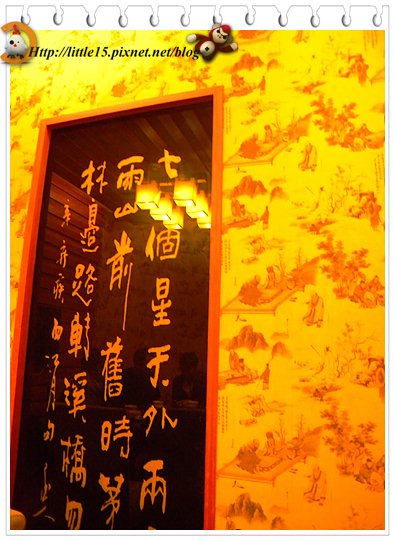 Http://little15.pixnet.net/blog
七個星天外兩
雨山前舊時茅
林邊路轉溪橋忽
辛弃疾